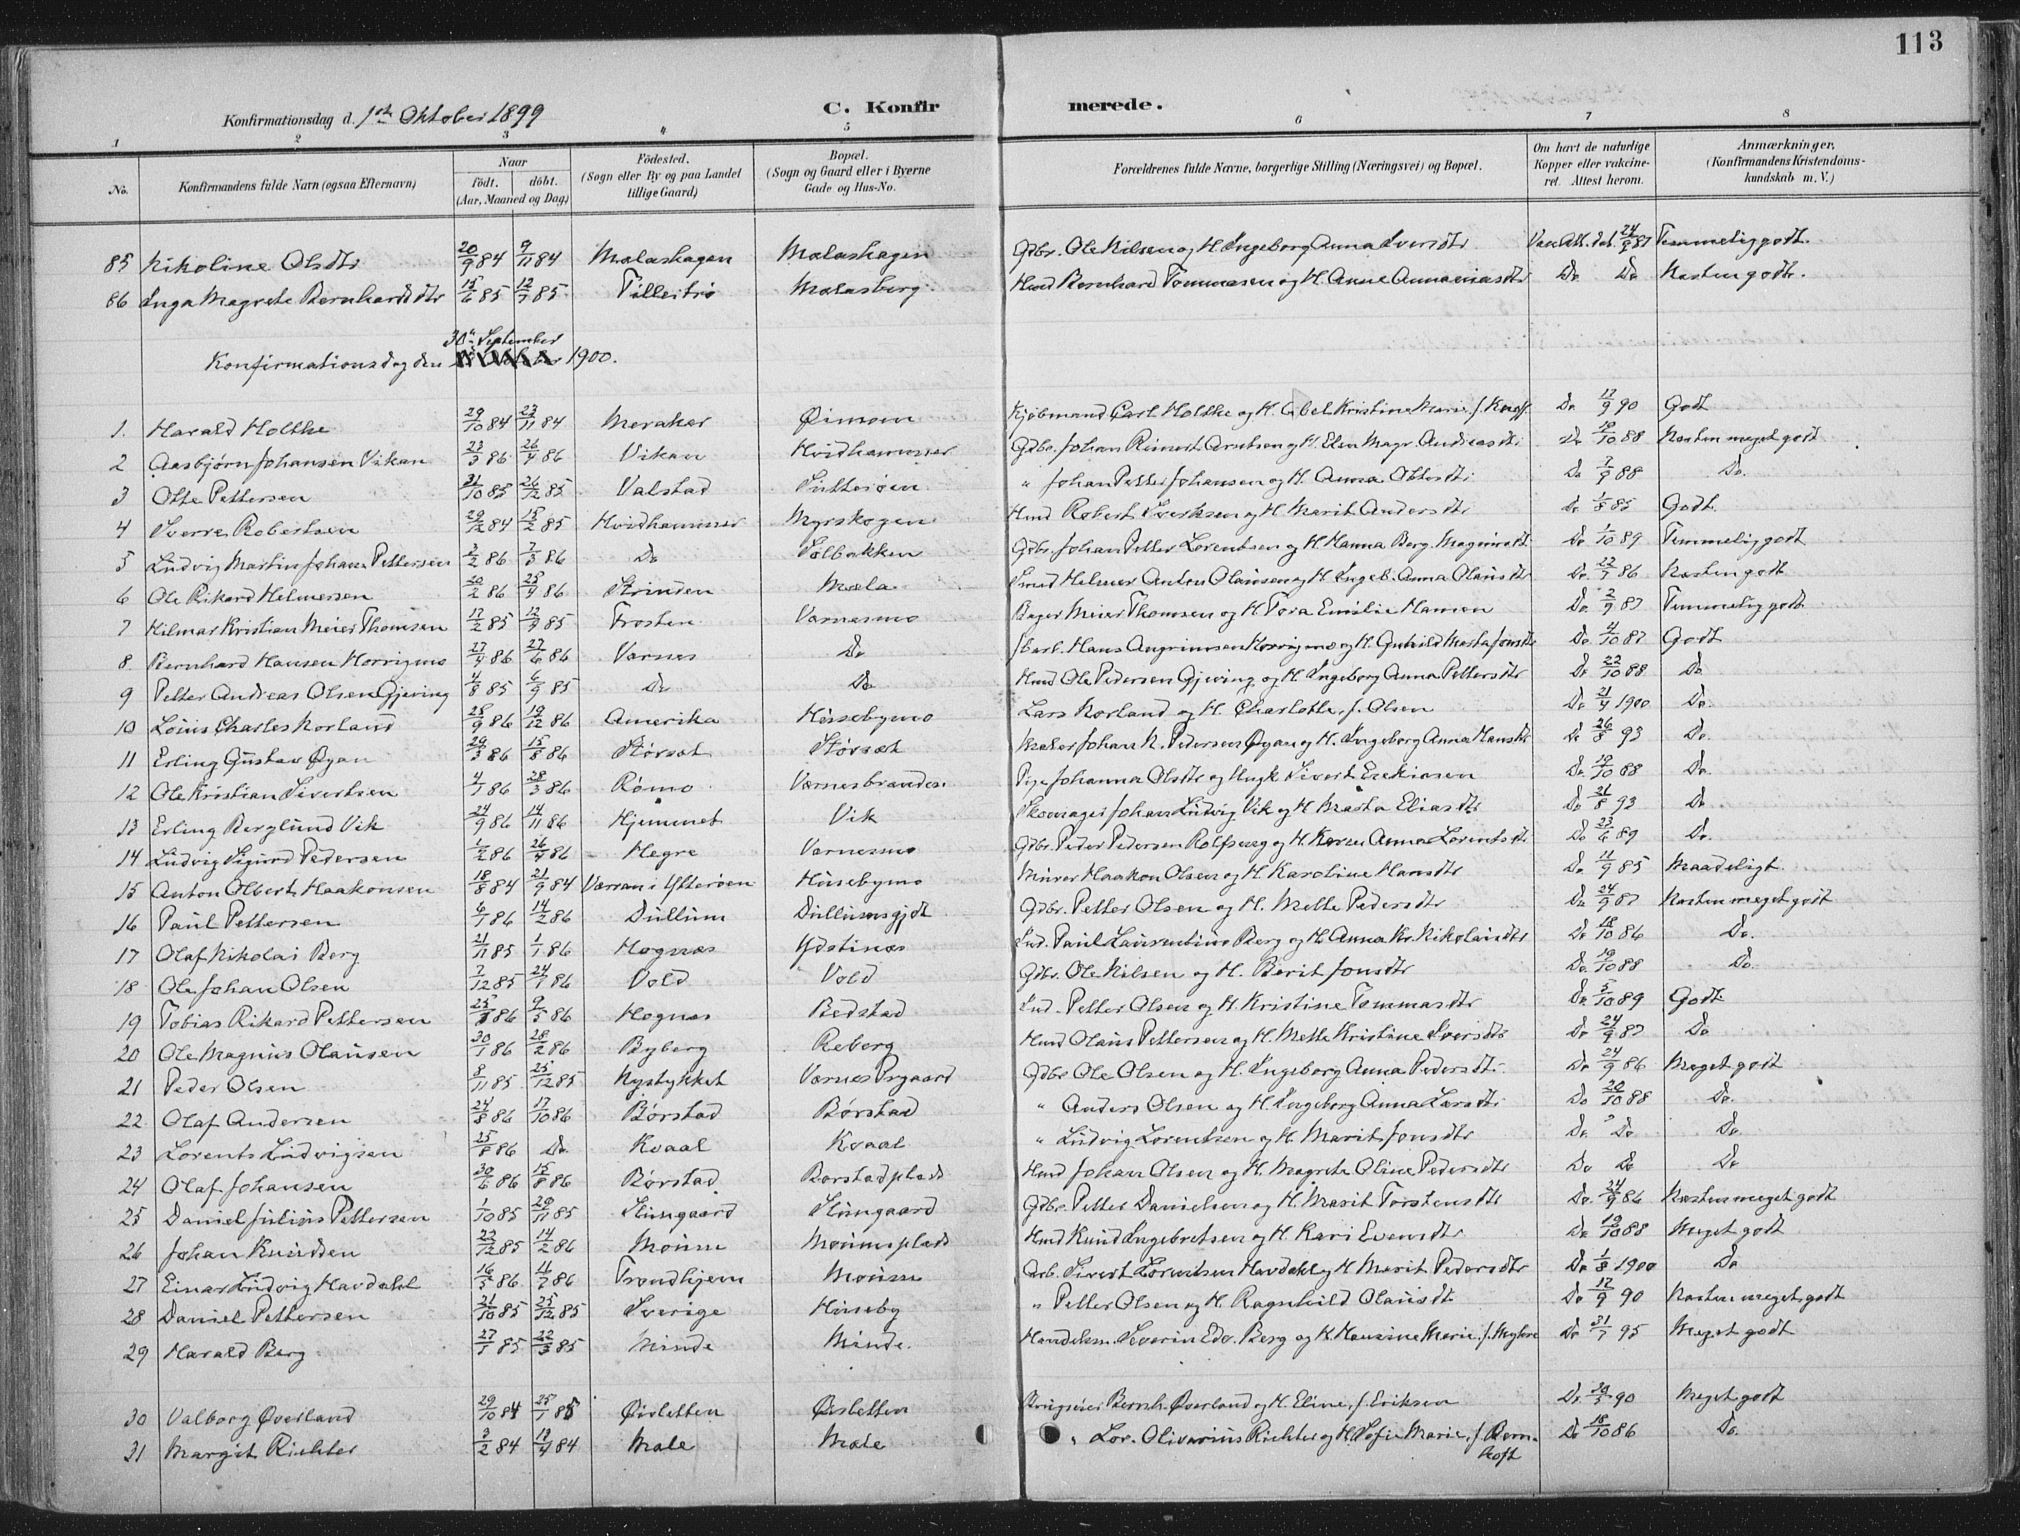 113
Konfirmationsdag d. 1ste Oktober 1899
C. Konfirmerede.
1 2 3 4 5 6 7 8
No. Konfirmandens fulde Navn (ogsaa Efternavn) Naar födt. döbt. (Aar, Maaned og Dag) Födested. (Sogn eller By og paa Landet tillige Gaard) Bopæl. (Sogn og Gaard eller i Byerne Gade og Hus-No. Forældrenes fulde Navne, borgerlige Stilling (Næringsvei) og Bopæl. Om havt de naturlige Kopper eller vakcineret. Attest herom. Anmærkninger. (Konfirmandens Kristendomskundskab m. V.)
85 Nikoline Olsdtr 20/9 84 9/11 84 Mælashagen Mælashagen Gdbr. Ole Nilsen og H. Ingeborg Anna Iversdtr Vac. Att. dat. 24/9 87 Temmelig godt.
86 Inga Magrete Bernhardsdtr 15/6 85 12/7 85 Tilleitrö Mælasberg Hmd Bernhard Tommasen og H. Anne Annaniasdtr Do Do Næsten godt.
Konfirmationsdag den 30te September 1900.
1. Harald Holtke 29/10 84 23/11 84 Meraker Øimoen Kjöbmand Carl Holtke og H. Abel Kristine Marie f. Knoff Do 17/9 90 Godt
2 Aasbjørn Johansen Vikan 23/3 86 26/4 86 Vikan Hvidhammer Gdbr. Johan Reinert Arntsen og H. Elen Magr. Andreasdtr Do 19/10 88 Næsten meget godt
3 Otte Pettersen 31/10 85 26/12 85 Valstad " Johan Petter Johansen og H. Anna Ottesdtr Do 7/9 88 Do.
4 Sverre Robertsen 29/12 84 15/2 85 Hvidhammer Myrskogen Hmd Robert Sverksen og H. Marit Andersdtr Do 1/8 85 Godt.
5 Ludvig Martin Johan Pettersen 2/2 86 7/3 86 Do Solbakken Gdbr. Johan Petter Lorentsen og H. Hanna Berg. Do 1/10 89 Temmelig godt
6 Ole Rikard Helmersen 20/2 86 25/9 86 Strinden Mæla Smed Helmer Anton Olausen og H. Ingeb. Anna Olausdtr Do 22/7 86 Næsten godt
7 Hilmar Kristian Meier Thomsen 17/2 85 12/4 85 Frosten Værnesmo Bager Meier Thomsen og H. Tora Emilie Hansen Do 2/9 87 Temmelig godt
8. Bernhard Hansen Horrigmo 27/4 86 27/6 86 Værnes Do Hans Angrimsen Horrigmo og H. Gunhild Marta Jonsdtr Do 4/10 87 Godt
9 Petter Andreas Olsen Gjeving 4/8 85 6/9 85 Do Do Hmd Ole Pedersen Gjeving og H. Ingeborg Anna Pettersdtr Do 22/10 88 Do
10 Louis Charles Norland 28/9 86 19/12 86 Amerika Husebymo Lars Norland og H. Charlotte, f. Olsen Do 21/4 1900 Do.
11 Erling Gustav Øyan 29/3 86 15/8 86 Størset Størset Johan N. Pedersen Øyan og H. Ingeborg Anna Hansdtr Do 26/8 93 Do.
12 Ole Kristian Sivertsen 4/1 86 28/3 86 Rømo Værnesbranden Pige Johanna Olsdtr og Ungk. Sivert Ezekiasen Do 19/10 88 Do.
13 Erling Berglund Vik 24/9 86 14/11 86 Hjemmet Vik Skomager Johan Ludvig Vik og H. Marta Eliasdtr Do 21/8 93 Do
14 Ludvig Sigurd Pedersen 1/2 86 26/4 86 Hegre Værnesmo Gdbr. Peder Pedersen Rolfseng og H. Karen Anna Lorentsdtr Do 23/6 89 Do.
15 Anton Olbert Haakonsen 18/8 84 21/9 84 Værran i Ytterøen Husebymo Murer Haakon Olsen og H. Karoline Hansdtr Do 11/9 85 Maadeligt.
16 Paul Pettersen 6/1 86 14/2 86 Dullum Dullumsgjdt Gdbr. Petter Olsen og H. Mette Pedersdtr Do 24/9 87 Næsten meget godt
17 Olaf Nikolai Berg 21/11 85 1/1 86 Hognæs Ydstines Ind. Paul Laurentius Berg og H. Anna Kr. Nikolaisdtr Do 18/10 86 Do.
18 Ole Johan Olsen 7/12 85 24/1 86 Vold Vold Gdbr. Ole Nilsen og H. Berit Jonsdtr Do. 19/10 88 Do.
19 Tobias Rikard Pettersen 25/3 86 9/5 86 Hognes Bedstad Ind. Petter Olsen og H. Kristine Tommasdtr Do. 5/10 89 Godt
20 Ole Magnus Olausen 30/1 86 28/2 86 Byberg Reberg Hmd Olaus Pettersen og H. Mette Kristine Iversdtr Do 24/9 87 Do
21 Peder Olsen 8/11 85 25/12 85 Nystykket Værnes Prgaard Gdbr Ole Olsen og H. Ingeborg Anna Pedersdtr Do 24/9 86 Meget godt
22 Olaf Andersen 24/8 86 17/10 86 Børstad Børstad " Anders Olsen og H. Ingeborg Anna Larsdtr Do 20/10 88 Do.
23 Lorents Ludvigsen 25/8 86 Do. Kvaal Kvaal " Ludvig Lorentsen og H. Marit Jonsdtr Do. Do Do
24 Olaf Johansen 30/6 86 15/8 86 Børstad Børstadplads Hmd Johan Olsen og H. Magrete Oline Pedersdtr Do Do Do
25 Daniel Julius Pettersen 1/10 85 29/11 85 Stungaard Stungaard Gdbr. Petter Danielsen og H. Marit Torstensdtr Do 24/9 86 Næsten meget godt
26 Johan Knudsen 22/12 85 14/2 86 Moum Moumsplads Hmd Knud Ingebretsen og H. Kari Evensdtr Do 19/10 88 Meget godt
27 Einar Ludvig Havdahl 16/5 86 11/7 86 Trondhjem Moum Arb. Sivert Lorentsen Havdahl og H. Marit Pedersdtr Do 1/8 1900 Do
28 Daniel Pettersen 21/10 85 25/12 85 Sverige Huseby " Petter Olsen og H. Ragnhild Olausdtr Do 17/9 90 Næsten meget godt
29 Harald Berg 27/1 85 22/3 85 Minde Minde. Handelsm. Severin Edv. Berg og H. Hansine Marie, f. Myhre Do 31/7 95 Meget godt
30 Valborg Øverland 29/10 84 25/1 85 Øisletten Øisletten Brugseier Bernh. Øverland og H. Eline, f. Eriksen Do 30/5 90 Meget godt
31 Margit Richter 3/2 84 19/4 84 Mæle Mæle " Lor. Olivarius Richter og H. Sofie Marie, f. Bernhoft Do 18/10 86 Do.